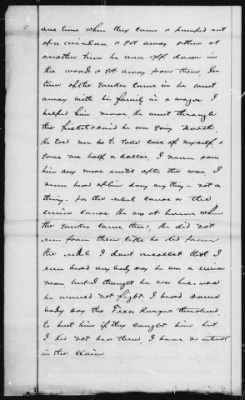 one time when they came & jumped out
of a window & got away others at
another time he was off down in
the woods & got away from them. In
time of the Yankees came in he went
away with his family in a wagon I
helped him move he went through
the fields said he was going North
he told me to take care of myself &
gave me half a dollar. I never saw
him any more until after the war. I
never heard of him doing any thing - not a
thing. for the rebel cause or the
union cause he was at home when
the Yankees came there, he did not
run from them like he did from
the rebels I don't recollect that I
ever heard any body say he was a union
man but I thought he was because
he would not fight. I heard some
body say the Texas Rangers threatened
to hurt him if they caught him but
I did not hear them. I have no interest
in the claim